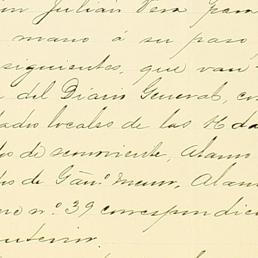 Julián Vera para
mano á su paso
siguientes, que van
del Diario General, co
locales de las Hda
de semoviente, Alamo
de Gan.º menor, Alam
nº 39 correspondie
anterior.